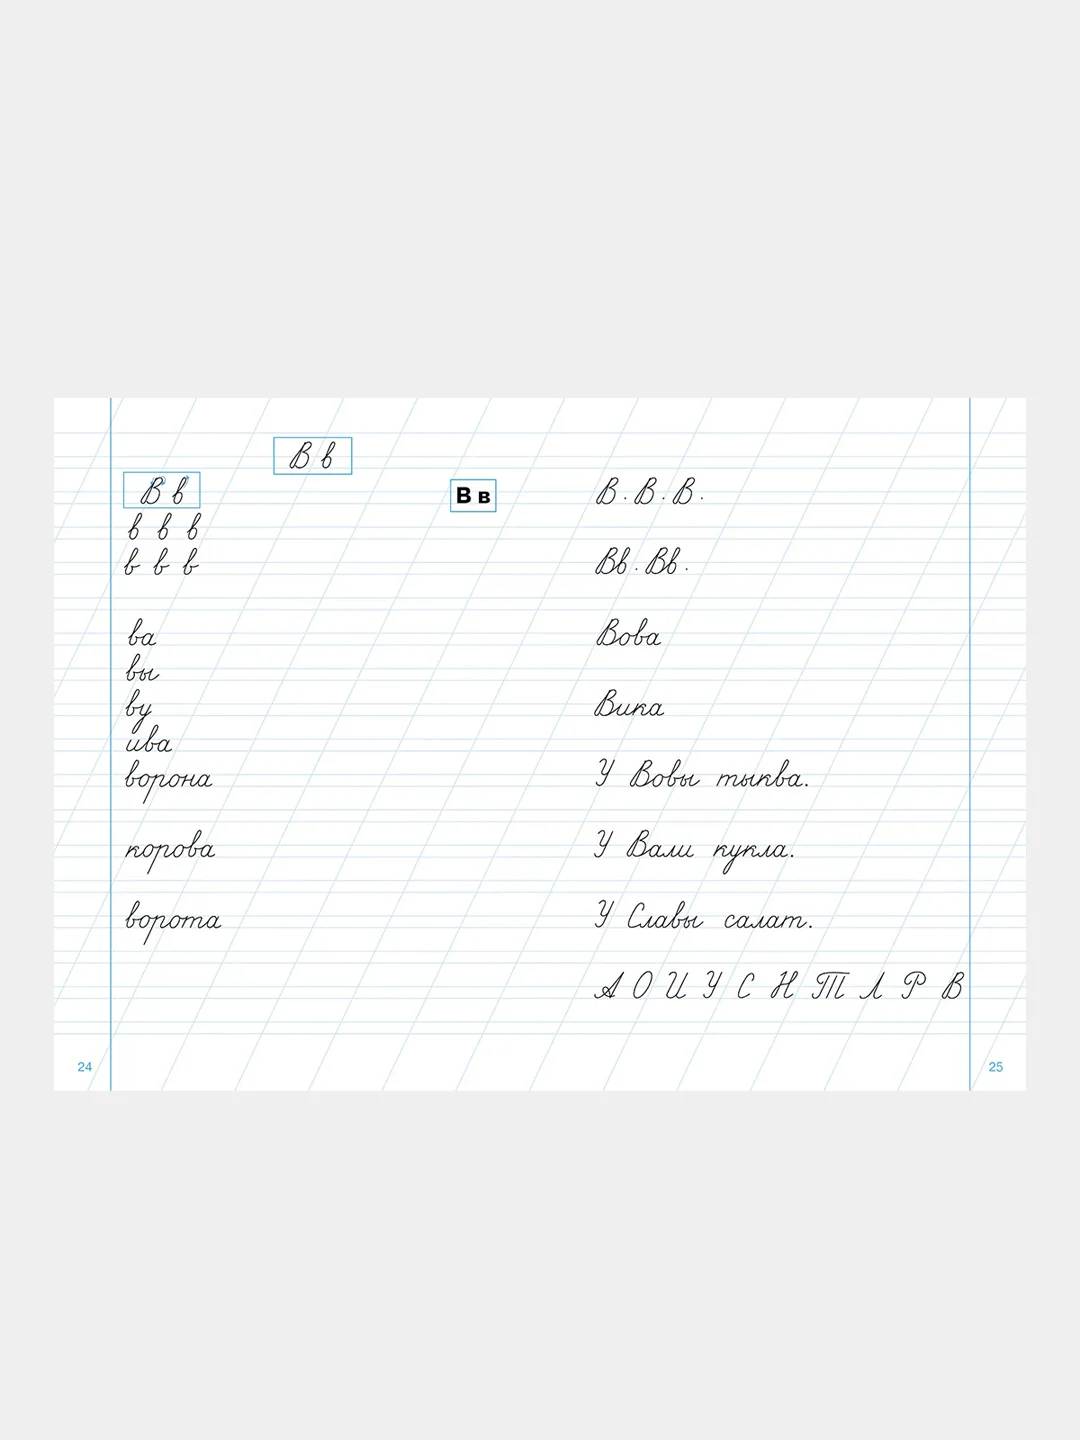 В в
В в
В в
в в в
в в в
ва
вы
ву
ива
ворона
корова
ворота
24
В . В . В .
Вв . Вв .
Вова
Вика
У Вовы тыква.
У Вали кукла.
У Славы салат.
А О И У С Н Т Л Р В
25